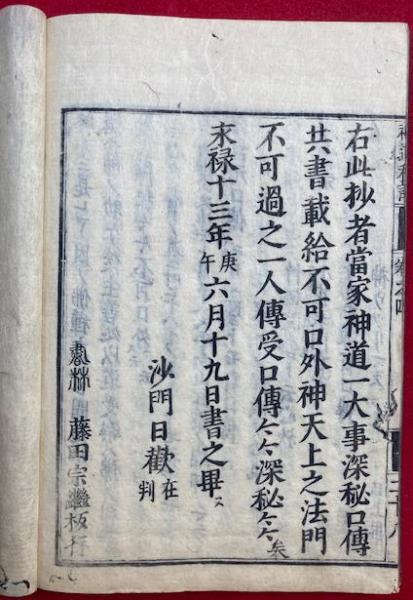 右此抄者當家神道一大事深秘口傳
共書載給不可口外神天上之法門
不可過之一人傳受口傳〻〻深秘〻〻矣
永禄十三年庚午六月十九日書之畢
沙門日歡在判
藤田宗繼板行
卷之四